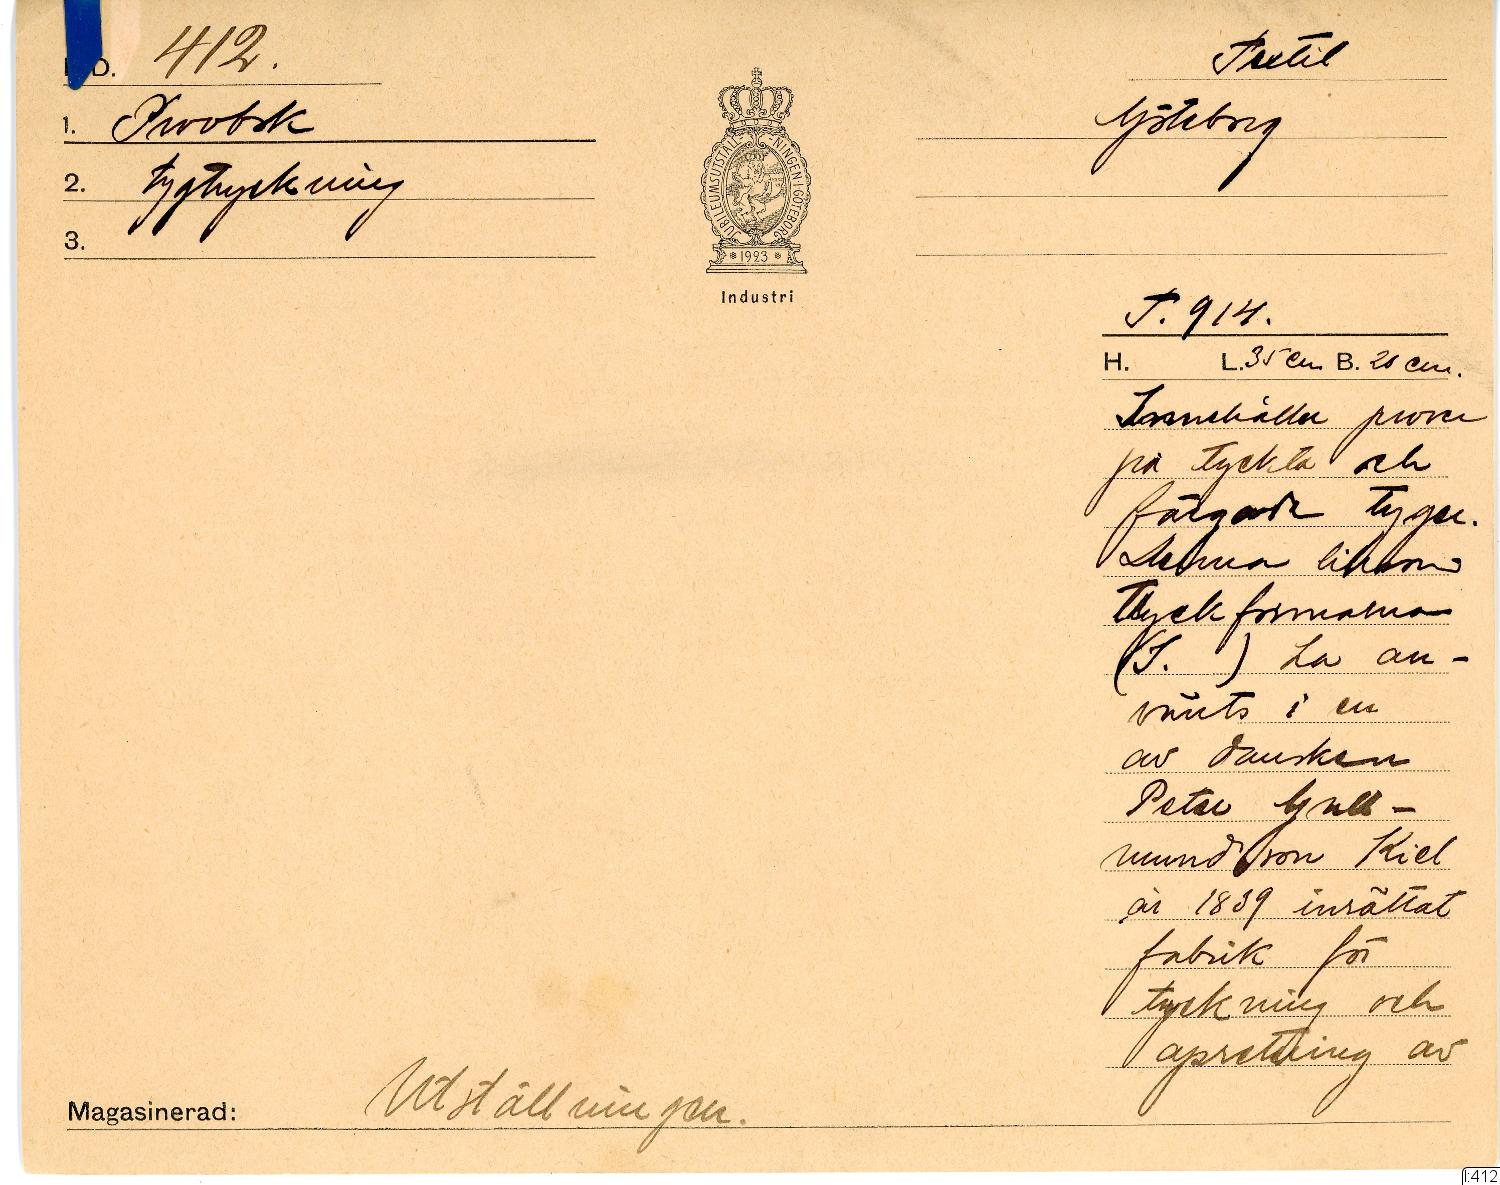 D. 412.
Textil
1. Provbok
Göteborg
2. tygtryckning
3.
JUBILEUMSUTSTÄLLNINGEN I GÖTEBORG
* 1923 *
Industri
T. 914.
H. L. 35 cm B. 20 cm.
Innehåller prover
på tryckta och
färgade tyger.
Denna liksom
tryckformarna
(I. ) ha an-
vänts i en
av dansken
Peter Gull-
mundsson Kiel
år 1839 inrättat
fabrik för
tryckning och
apretering av
Magasinerad: Utställningen.
I:412